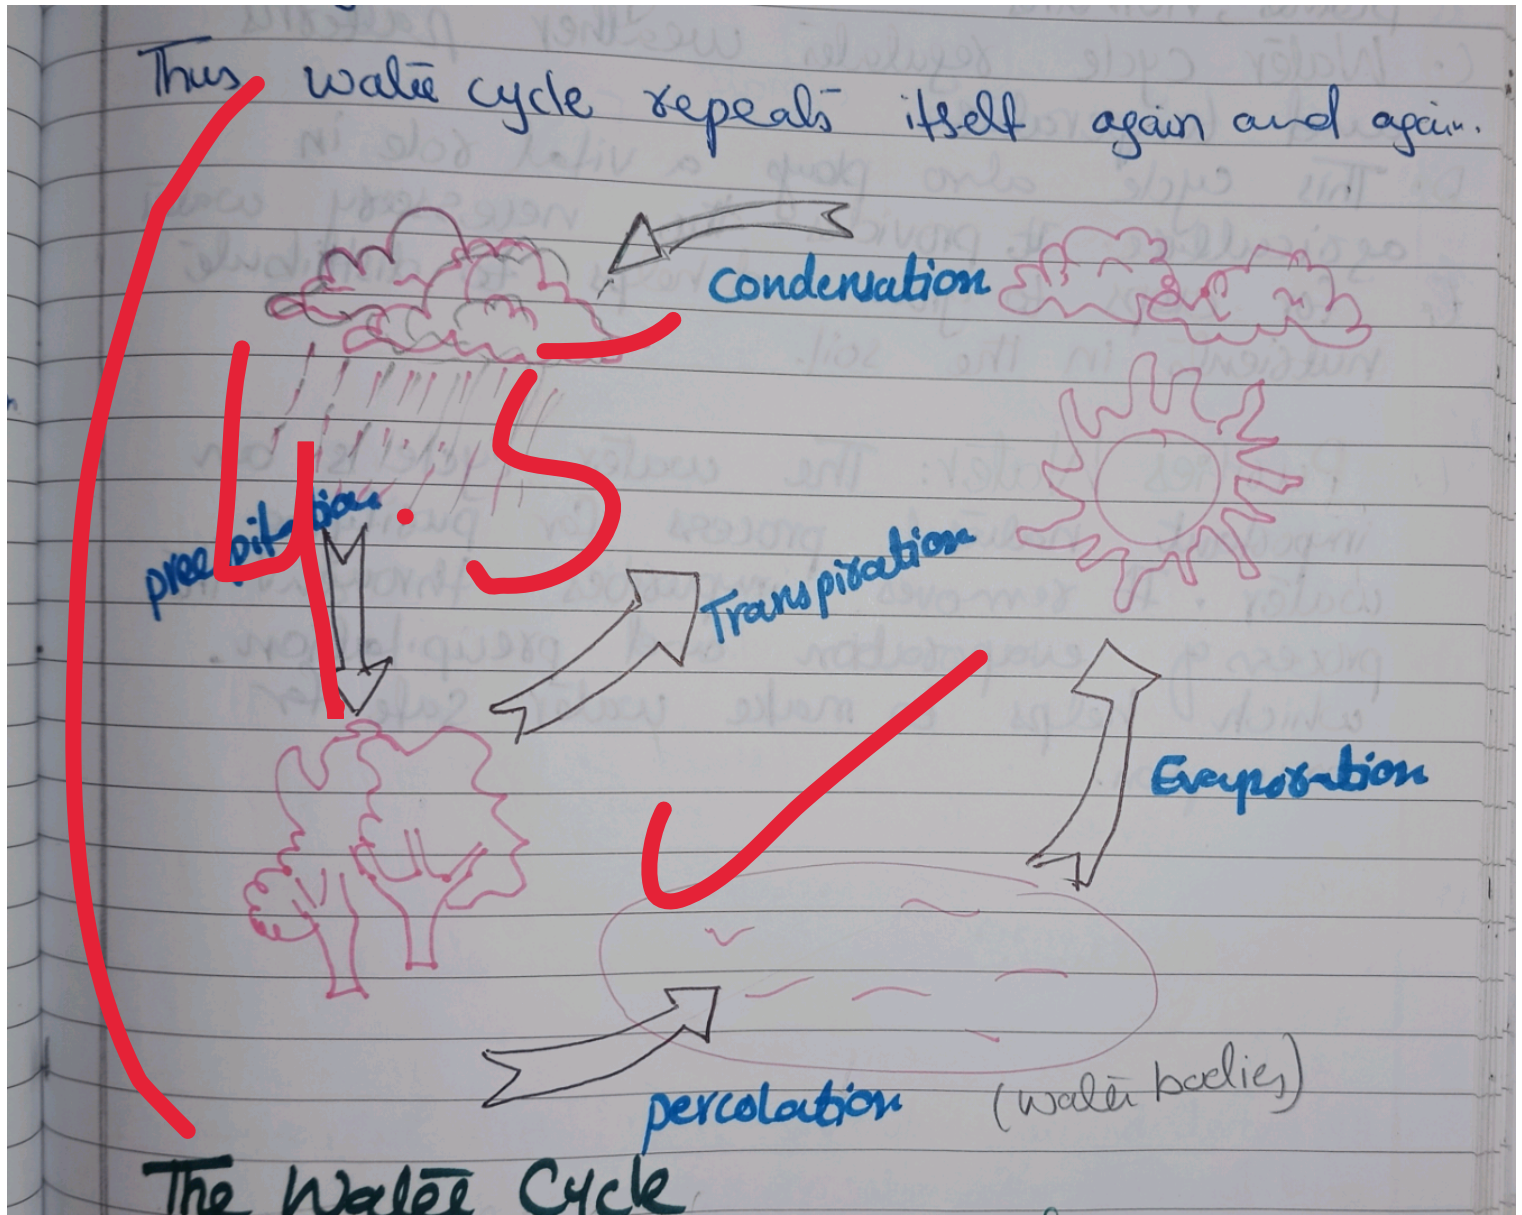 Thus water cycle repeats itself again and again.
Condensation
precipitation
Transpiration
4.5
Evaporation
percolation
(water bodies)
The Water Cycle